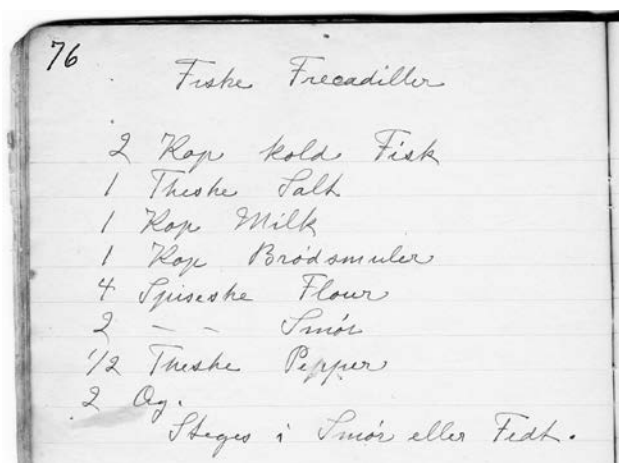 76
Fiske Frecadiller
2 Kop kold Fisk
1 Theske Salt
1 Kop Milk
1 Kop Brødsmuler
4 Spiseske Flour
2 - - Smör
1/2 Theske Pepper
2 Æg.
Steges i Smör eller Fedt.